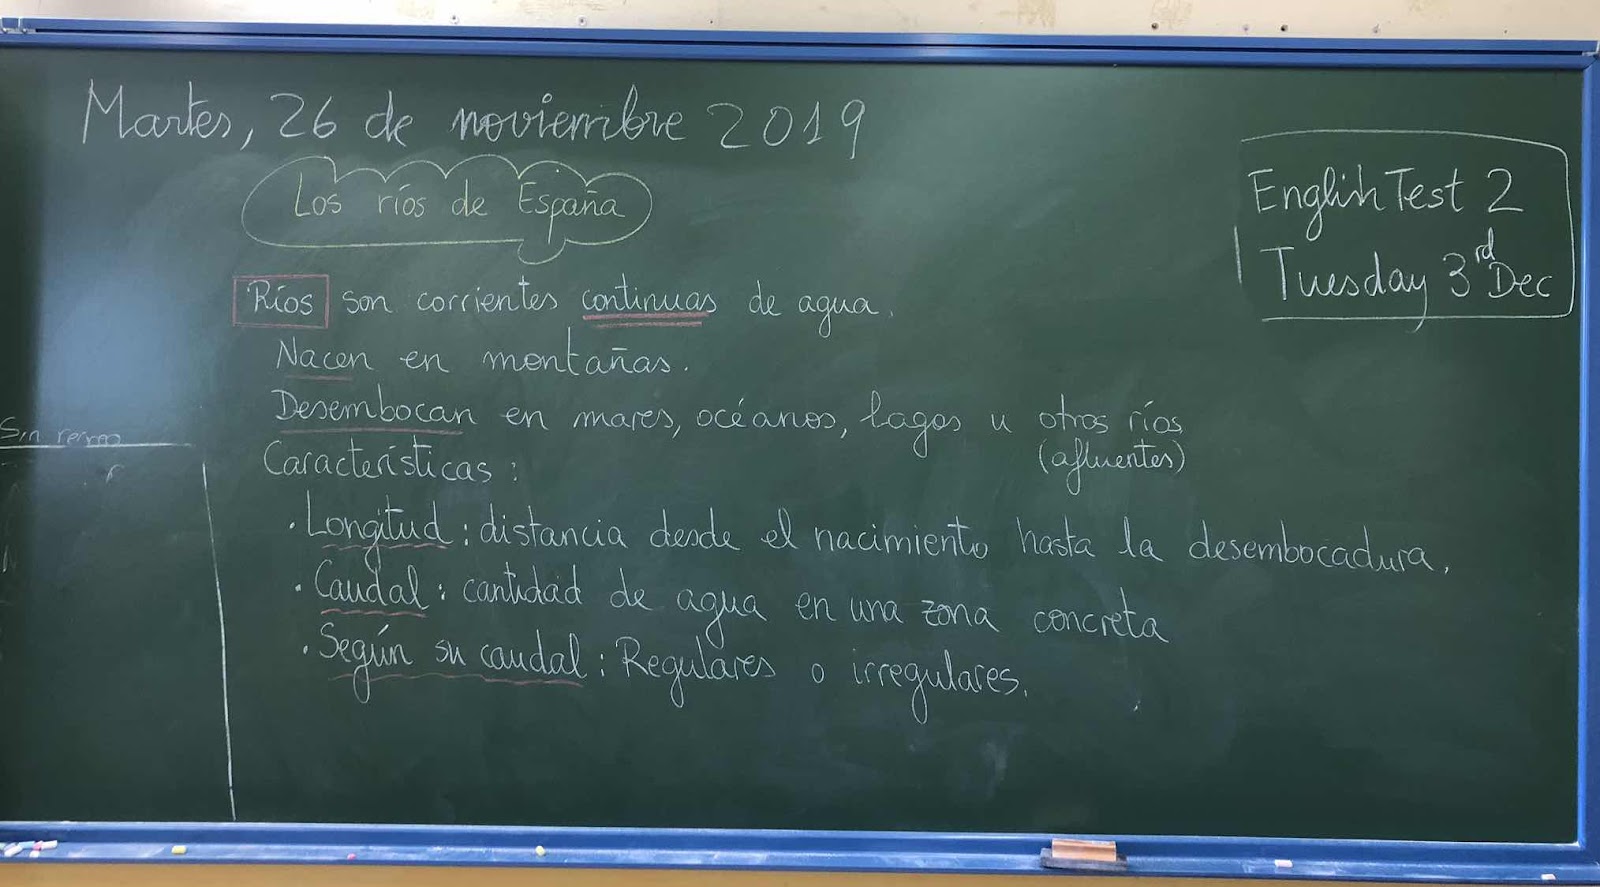 Martes, 26 de noviembre 2019
Los ríos de España
English Test 2
Tuesday 3rd Dec
Ríos son corrientes continuas de agua.
Nacen en montañas.
Desembocan en mares, océanos, lagos u otros ríos
(afluentes)
Características:
· Longitud: distancia desde el nacimiento hasta la desembocadura.
· Caudal: cantidad de agua en una zona concreta
· Según su caudal: Regulares o irregulares.
Sin